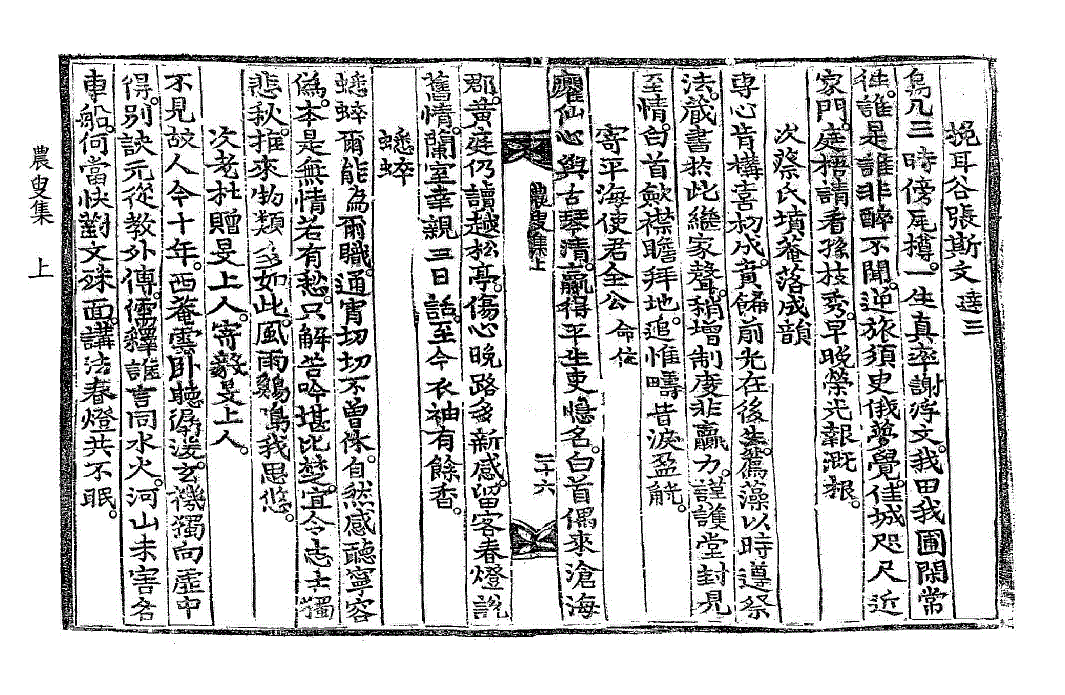 挽耳谷張斯文達三
烏几三時傍瓦樽。一生真率謝浮文。我田我圃閑常
往。誰是誰非醉不聞。逆旅須臾俄夢覺。佳城咫尺近
家門。庭梧請看孫枝秀。早晚榮光報溉根。
次蔡氏墳菴落成韻
專心肯構喜初成。賁餙前光在後生。蘋藻以時遵祭
法。蔵書於此繼家聲。稍增制度非贏力。謹護堂封見
至情。白首歛襟瞻拜地。追惟疇昔淚盈觥。
寄平海使君全公命佐
癯仙心與古琴清。贏得平生吏隱名。白首偶來滄海
農叟集上
二十六
郡。黄庭仍讀越松亭。傷心晚路多新感。留客春燈說
舊情。蘭室幸親三日話。至今衣袖有餘香。
蟋蟀
蟋蟀爾能為爾職。通宵切切不曾休。自然感聽寧容
僞。本是無情若有愁。只解苦吟堪比楚。宜令志士獨
悲秋。推來物類多如此。風雨鷄鳴我思悠。
次老杜贈旻上人。寄毅旻上人。
不見故人今十年。西菴雲卧聽潺湲。玄機獨向虛中
得。別訣元從敎外傳。儒釋誰言同水火。河山未害各
車船。何當快對文殊面。講法春燈共不眠。
農叟集 上